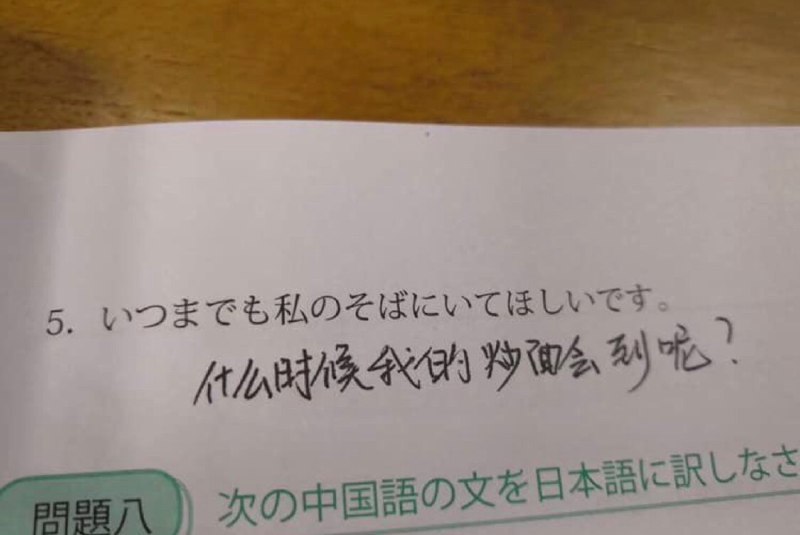 5. いつまでも私のそばにいてほしいです。
什么时候我的炒面会到呢?
問題八 次の中国語の文を日本語に訳しなさ